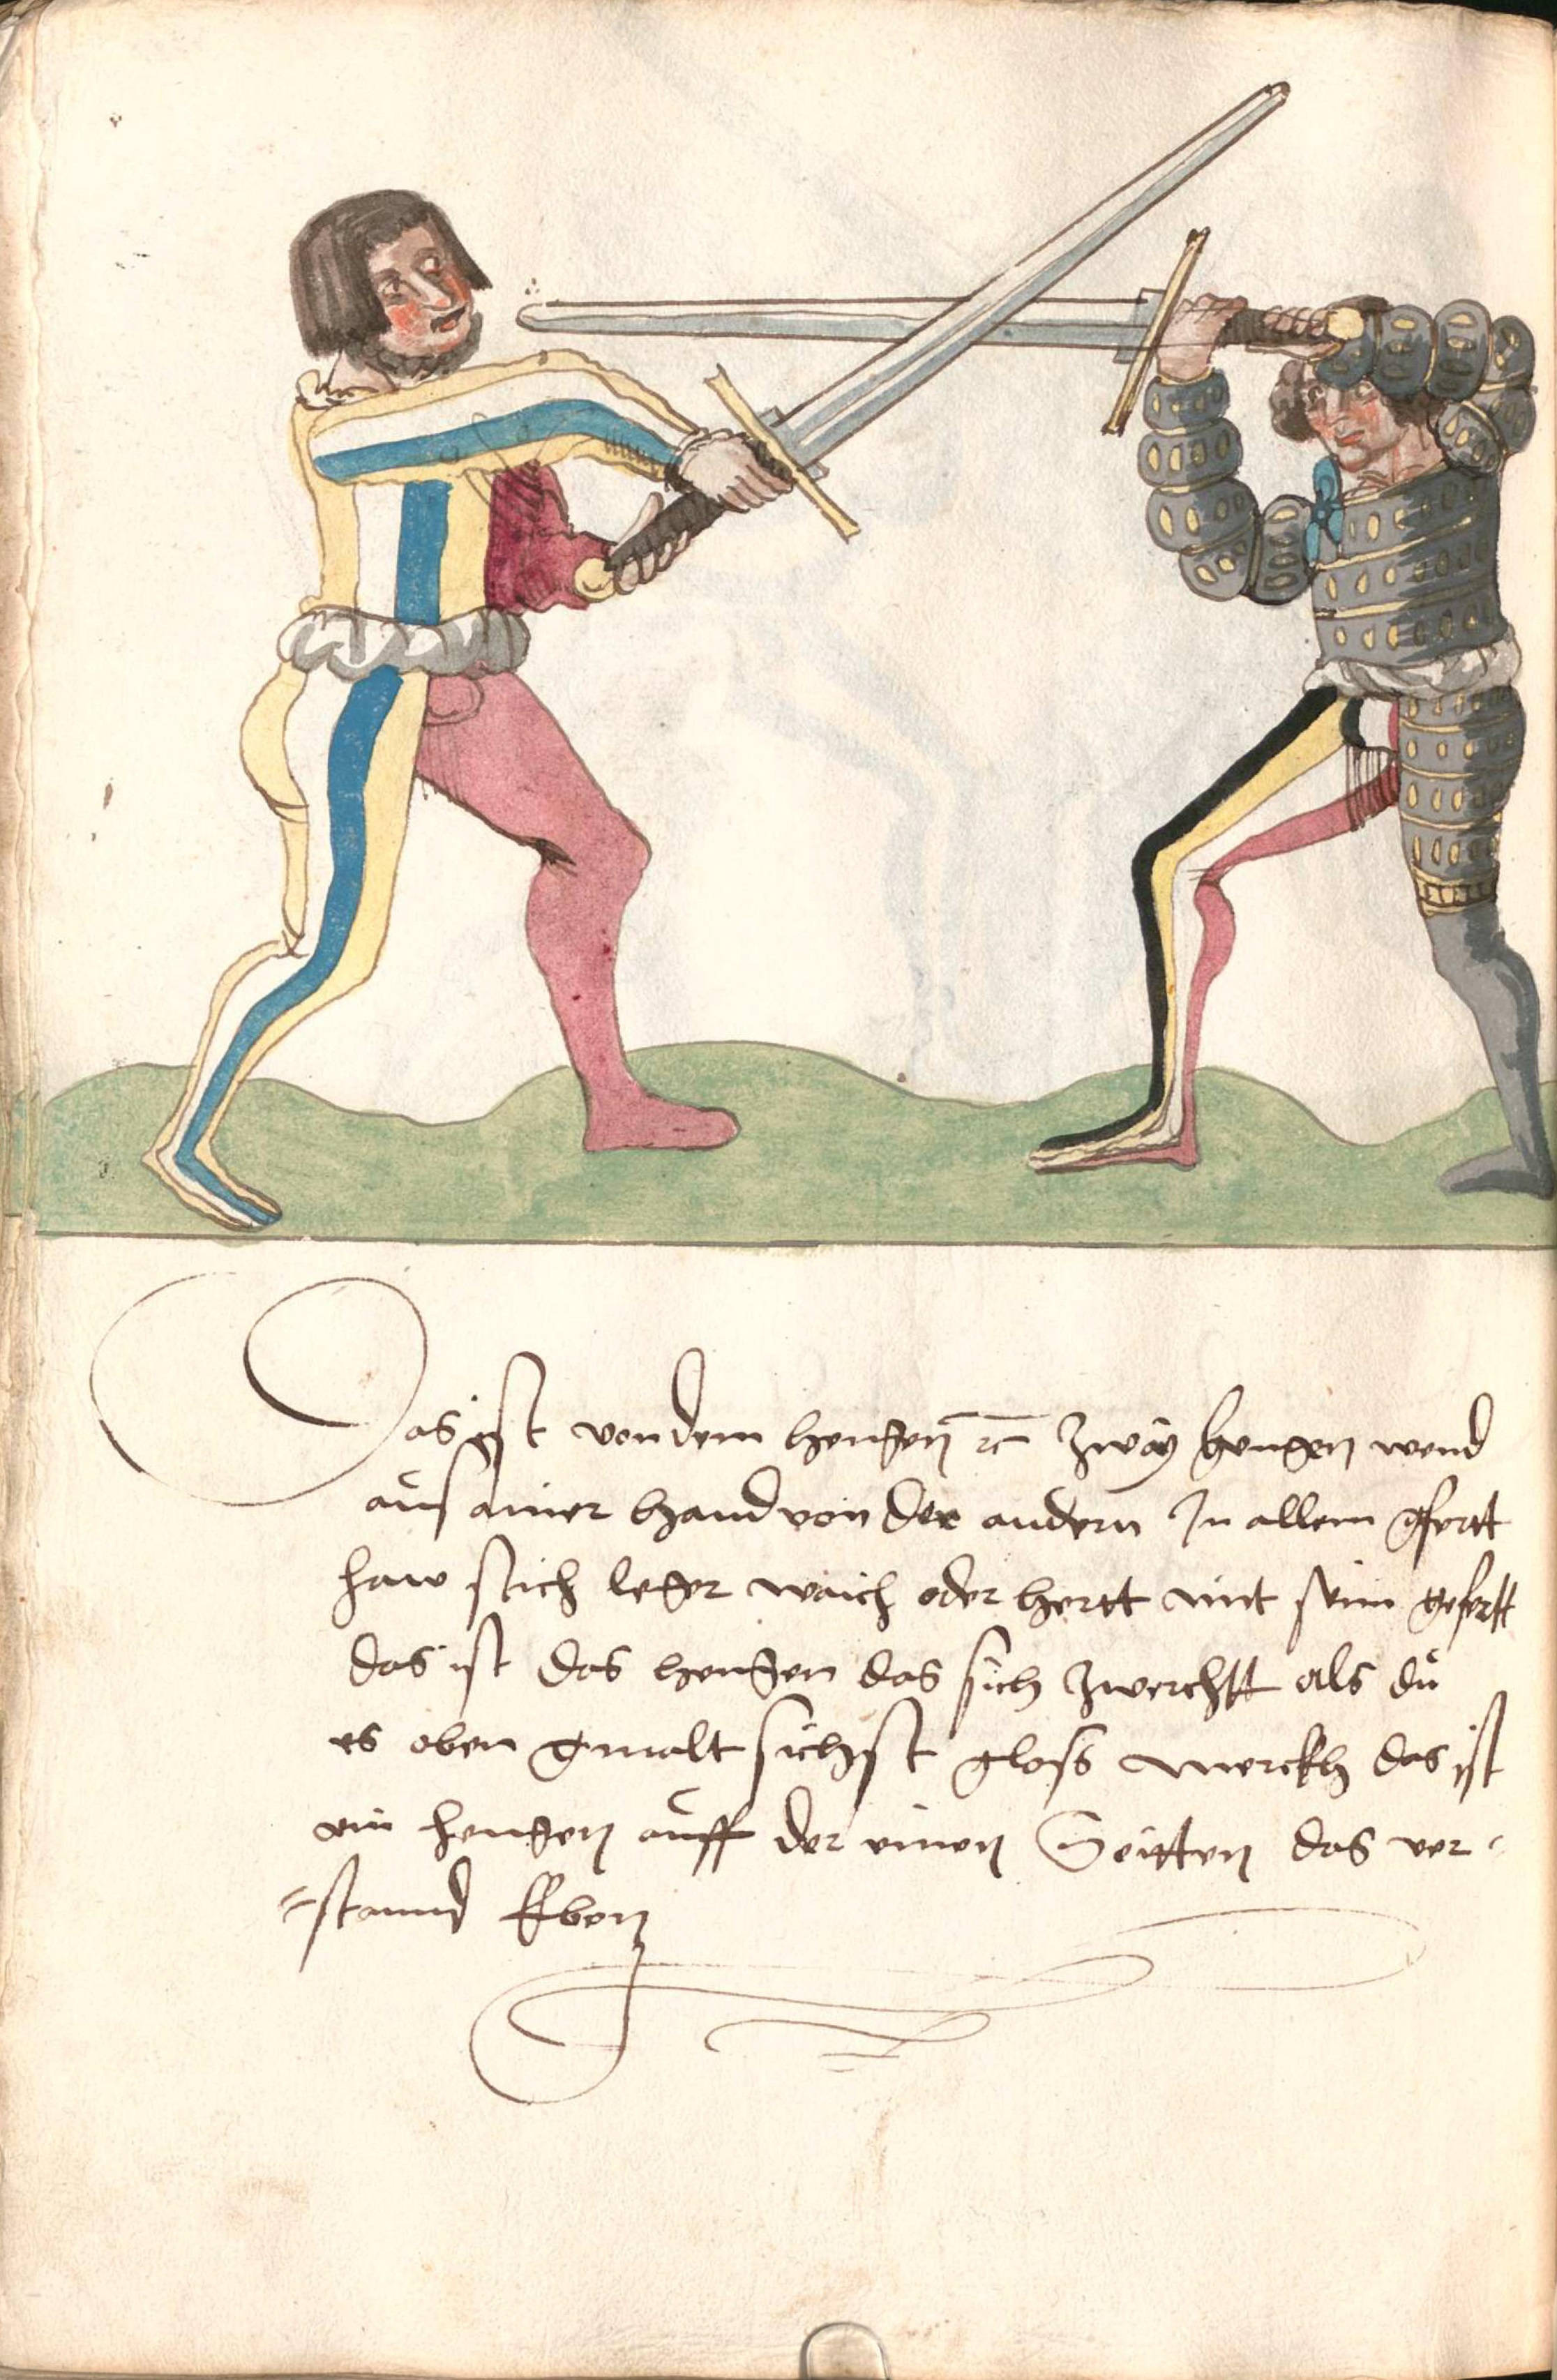 Das ist von dem hengen rc zway hengen wend
aus ainer hand von der andern In allem gfertt
haw stich leger waich oder hertt mit seim gefertt
das ist das hengen das sich zwerchtt als dů
es oben gmalt sichst gloss Merckh das ist
ein hengen auff der einen Seitten das ver-
-stannd Eben